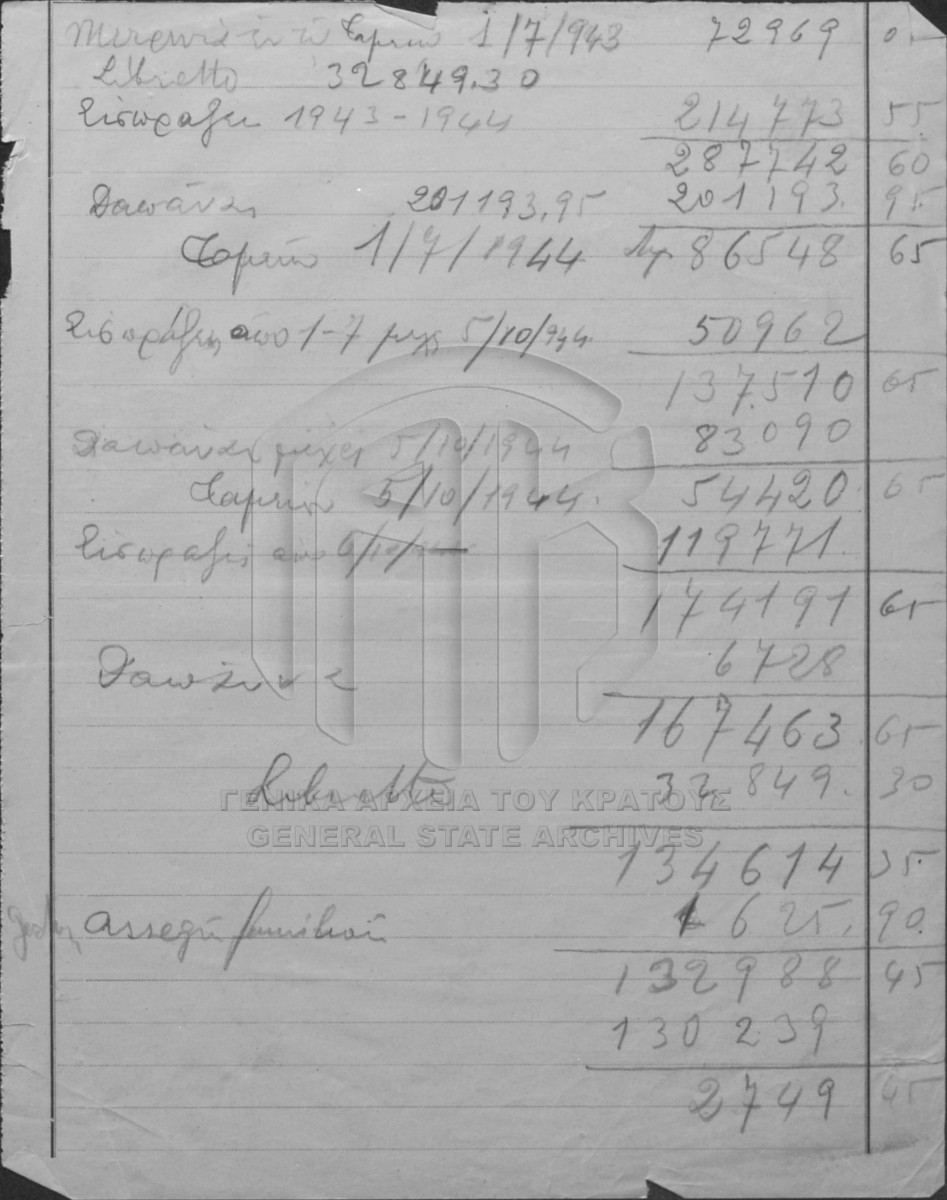 Μετρητά εν τω Ταμείω 1/7/1943 72969 0
Libretto 32849.30
Εισπράξεις 1943-1944 214773 55
287742 60
Δαπάναι 201193,95 201193. 95
Ταμείον 1/7/1944 86548 65
Εισπράξεις από 1-7 μεχρ 5/10/944 50962
137.510 65
83090
Δαπάναι μέχρι 5/10/1944
Ταμείον 5/10/1944. 54420 65
Εισπράξεις από 6/10/ 119771.
174191 65
Δαπάναι 6728
167463 65
Libretto 32849. 30
ΓΕΝΙΚΑ ΑΡΧΕΙΑ ΤΟΥ ΚΡΑΤΟΥΣ
GENERAL STATE ARCHIVES
134614 35
Assegni familiari 1625. 90
132988 45
130239
2749 45